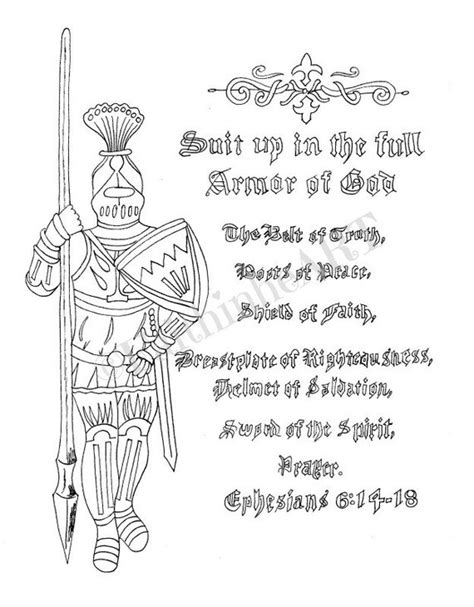 Suit up in the full
Armor of God
The Belt of Truth,
Boots of Peace,
Shield of Faith,
Breastplate of Righteousness,
Helmet of Salvation,
Sword of the Spirit,
Prayer.
Ephesians 6:14-18